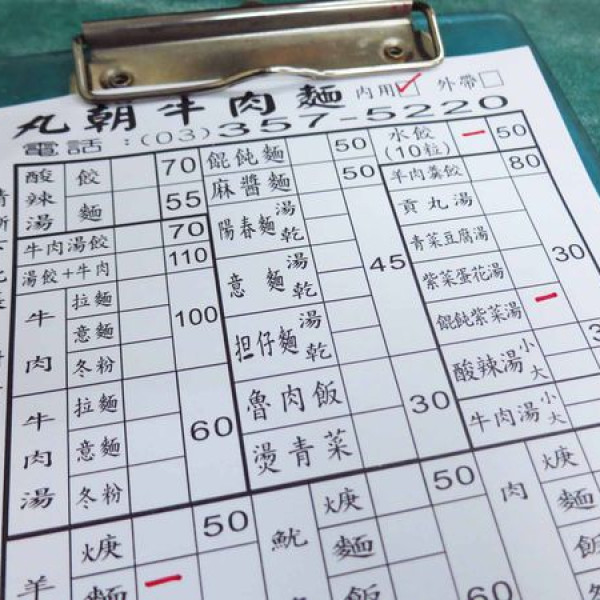 丸朝牛肉麵 內用 ✓ 外帶
電話:(03)357-5220
酸辣湯 餃 70
麵 55
牛肉湯餃 70
湯餃+牛肉 110
牛肉 拉麵 意麵 冬粉 100
牛肉湯 拉麵 意麵 冬粉 60
餛飩麵 50
麻醬麵 50
陽春麵 湯 乾
意麵 湯 乾 45
担仔麵 湯 乾
魯肉飯 30
燙青菜
水餃(10粒) 一 50
羊肉羹餃 80
貢丸湯
青菜豆腐湯
紫菜蛋花湯 30
餛飩紫菜湯 一
酸辣湯 小 大
牛肉湯 小 大
羊 焿 50
麵 一
魷 焿 50
麵
飯 60
肉 焿
麵
飯